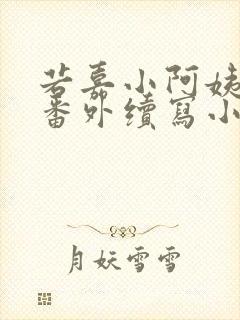 若嘉小阿姨
番外續寫小
月妖雪雪